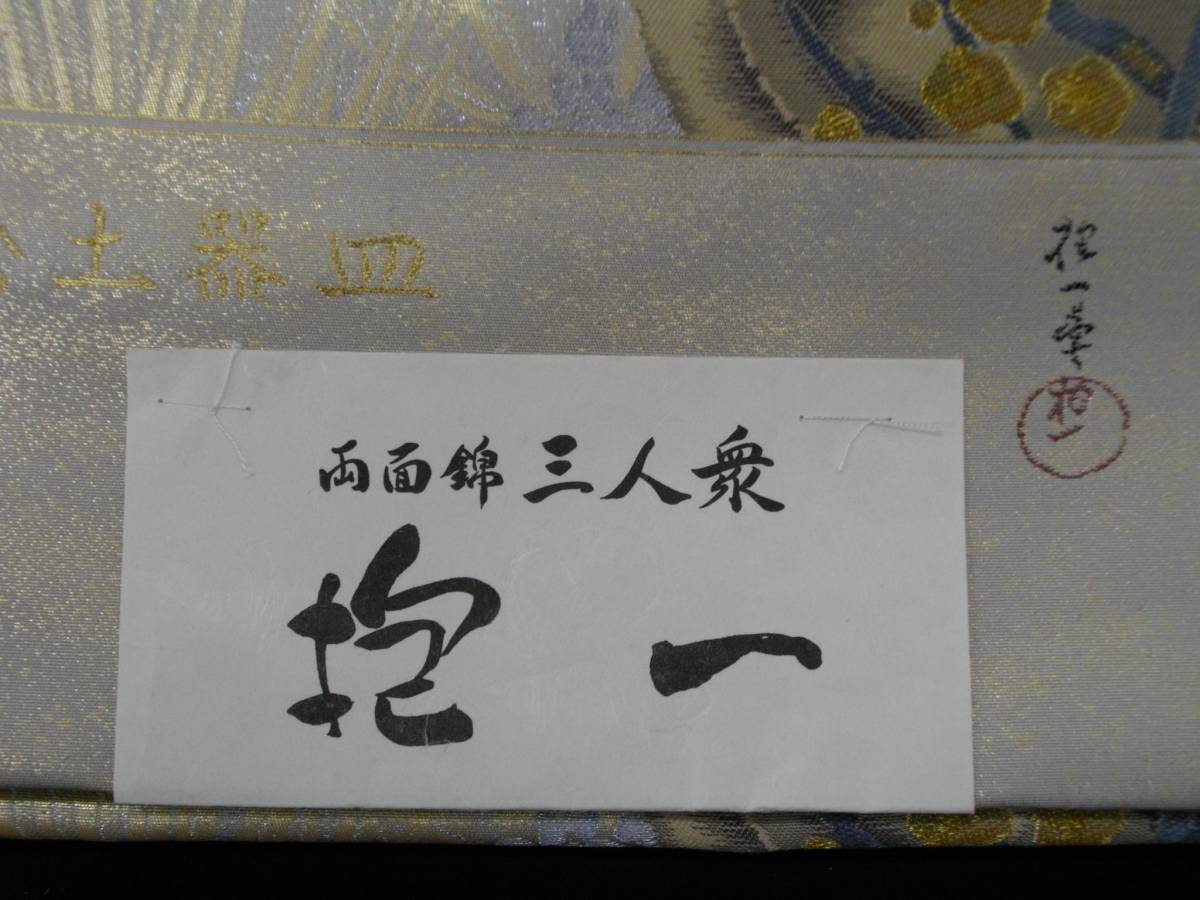 土器皿
抱一筆
抱一
両面錦三人衆
抱一